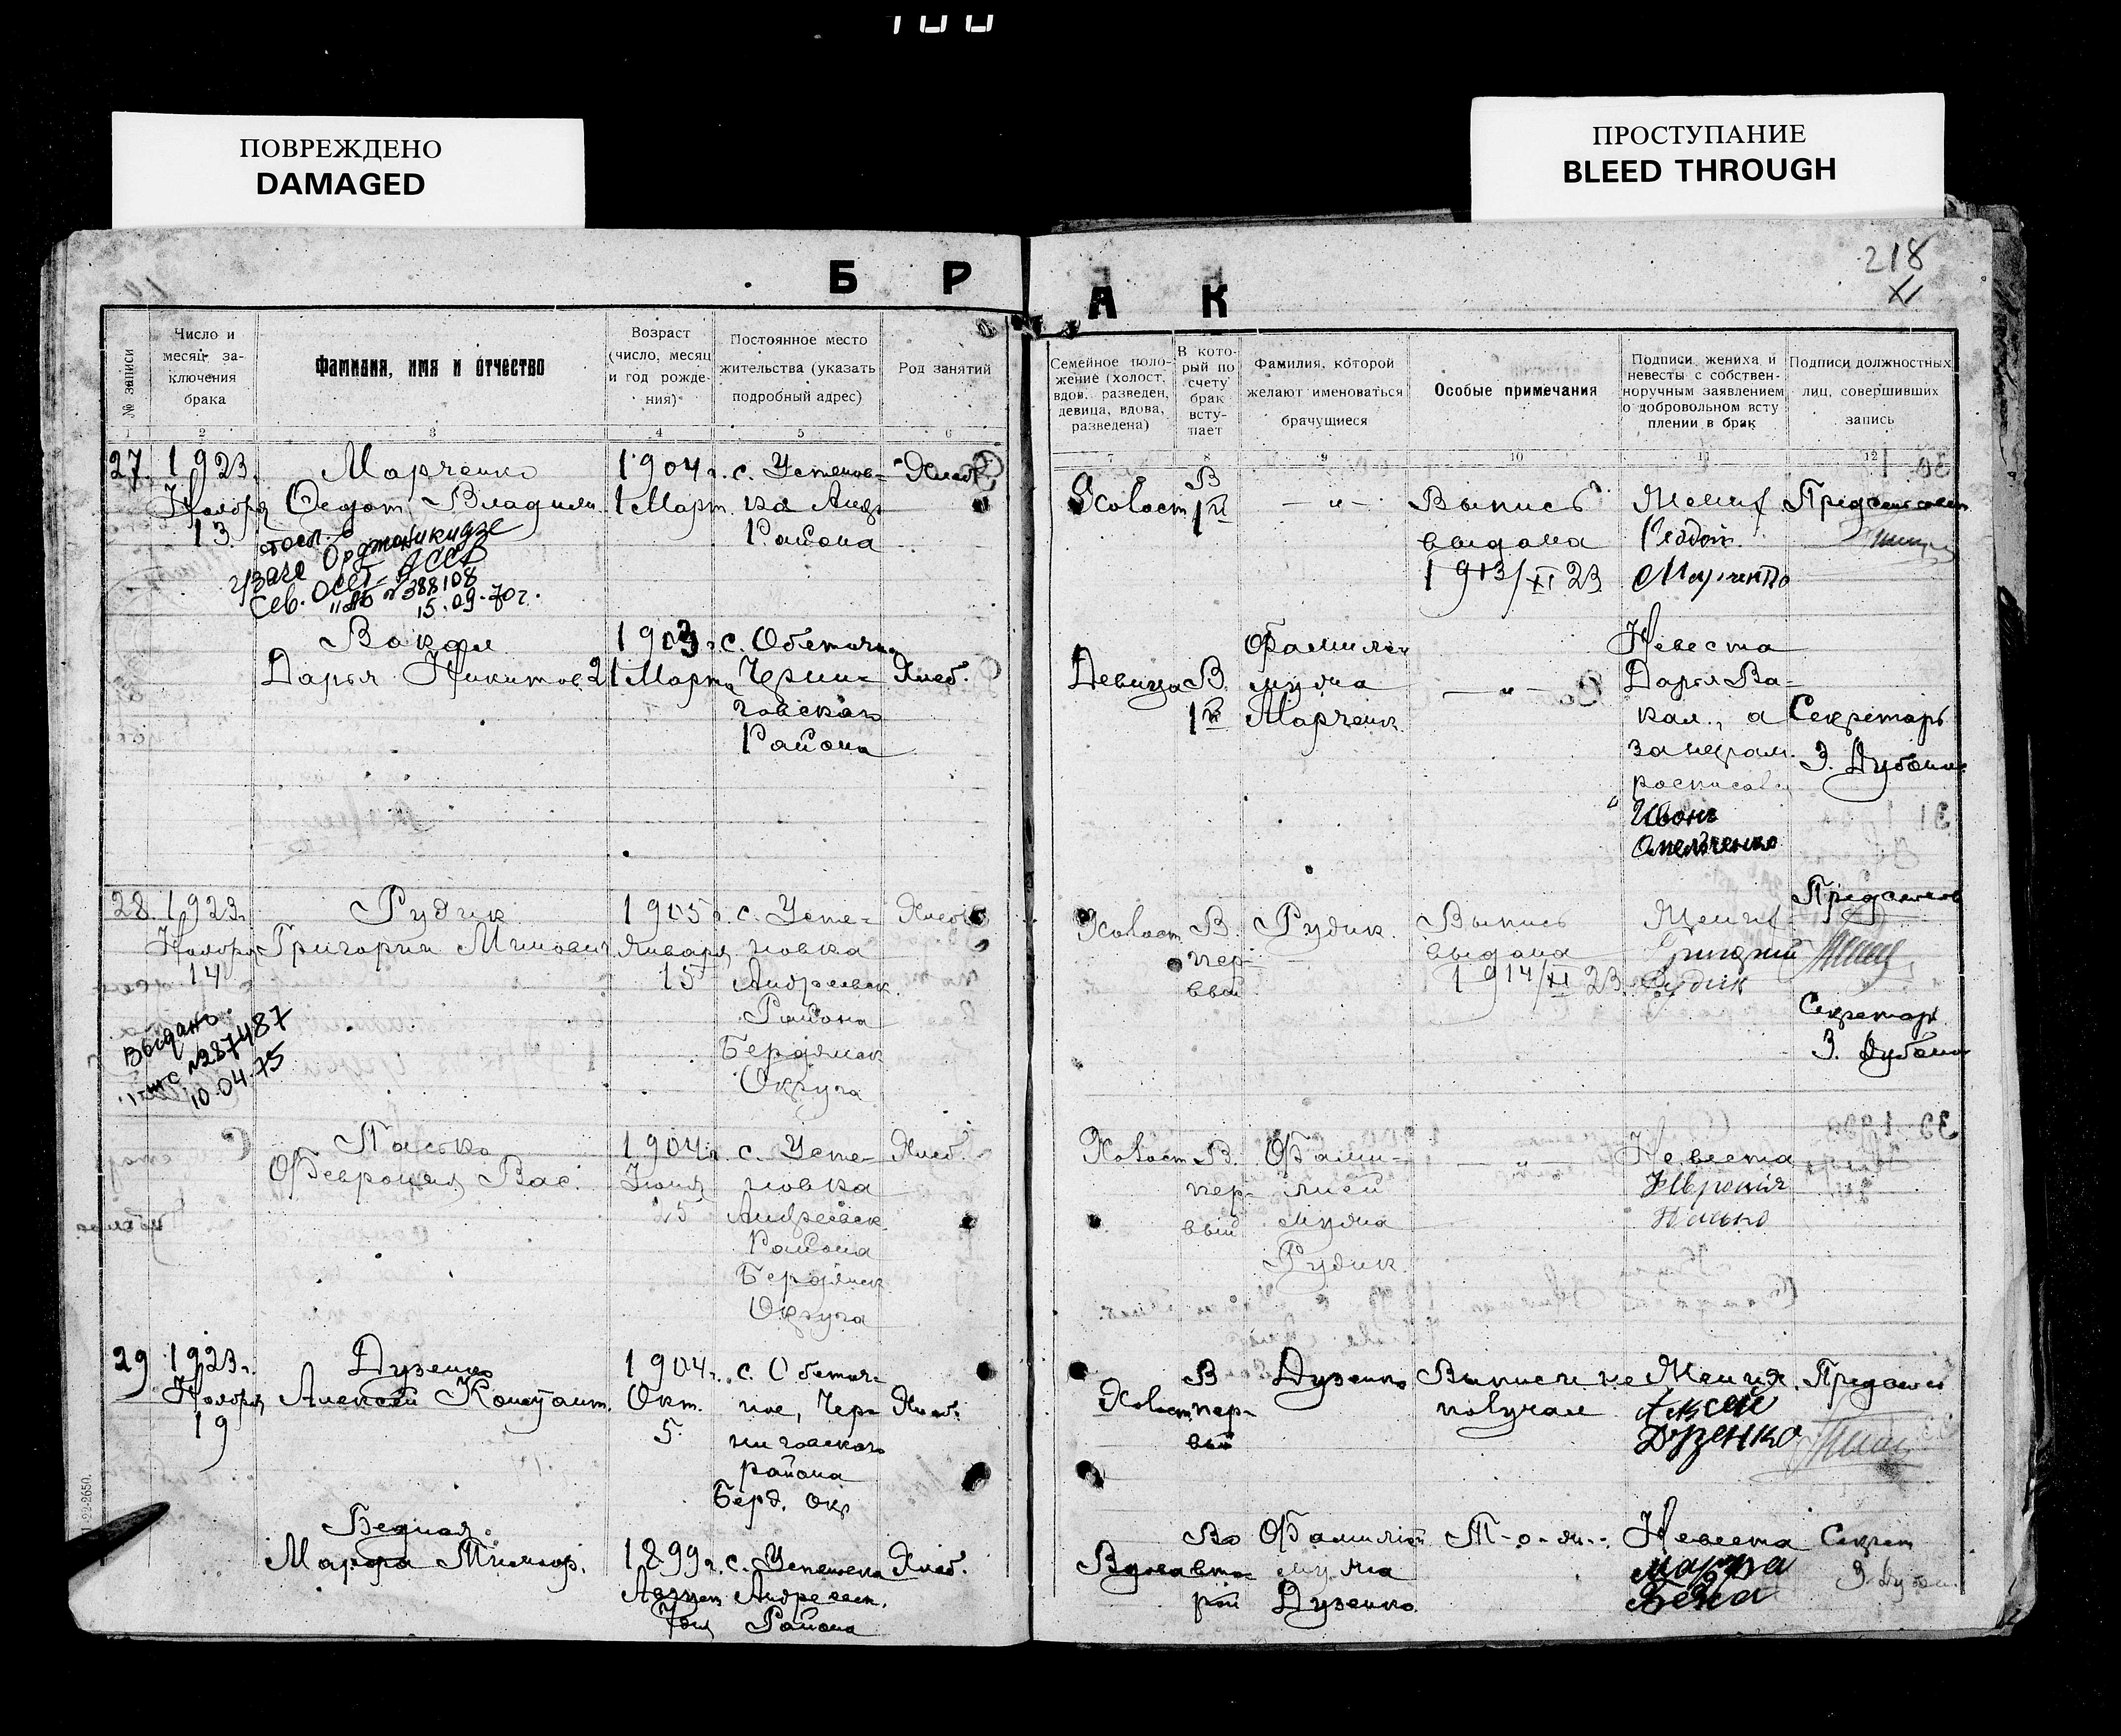 100
ПОВРЕЖДЕНО
DAMAGED
ПРОСТУПАНИЕ
BLEED THROUGH
218
XI
Б Р А К
№ записи
Число и месяц за-
ключения
брака
Фамилия, имя и отчество
Возраст
(число, месяц
и год рожде-
ния)
Постоянное место
жительства (указать
подробный адрес)
Род занятий
Семейное поло-
жение (холост,
вдов., разведен,
девица, вдова,
разведена)
В кото-
рый по
счету
брак
всту-
пает
Фамилия, которой
желают именоваться
брачущиеся
Особые примечания
Подписи жениха и
невесты с собствен-
норучным заявлением
о добровольном всту
плении в брак
Подписи должностных
лиц, совершивших
запись
1 2 3 4 5 6 7 8 9 10 11 12
27
1923
Ноября
13
Марченко
Федот Владим.
1904 г.
1 Март.
с. Успенов-
ка Анд.
Района
Хлеб.
Холост
В
1й
— " —
Выпись
выдана
1913/XI 23
Жених
Федот
Марченко
Предсельсовет
Орджоникидзе
Сев. Осет АССР
№ 388108
15.09.70г.
Вакал
Дарья Никитов.
1903 г.
21 Марта
с. Обеточн
Черни-
говского
Района
Хлеб.
Девица
В
1й
Фамилия
мужа
Марченк
— " —
Невеста
Дарья Ва-
кал, а
за неграм.
росписался
Иван
Омельченко
Секретарь
З. Дубина
28
1923 г.
Ноября
14
Рудик
Григорий Минович
1905 г.
Января
15
с. Успе-
новка
Андреевск.
Района
Бердянск
Округа
Хлеб
Холост
В
пер-
вый
Рудик
Выпись
выдана
1914/XI 23
Жених
Григорий
Рудик
Предсельсов
Секретарь
З. Дубина
Выдано
№287487
10.04.75
Пасько
Феврония Вас.
1904 г.
Июня
25
с. Успе-
новка
Андреевск
Района
Бердянск
Округа
Хлеб.
Холост
В
пер-
вый
Фами-
лией
мужа
Рудик
— " —
Невеста
Феврония
Пасько
29
1923 г.
Ноября
19
Дузенко
Алексей Констант.
1904 г.
Окт.
5
с. Обеточ-
ное, Чер-
ниговского
района
Берд. окр
Хлеб.
Холост
В
пер-
вый
Дузенко
Выписи не
получал
Жених
Алексей
Дузенко
Предсельс
Бедная
Марфа Тимоф.
1899 г.
Август
с. Успеновка
Андреевск.
Района
Хлеб.
Вдова
Во
вто-
рой
Фамилией
мужа
Дузенко
Т-о-ж-
Невеста
Марфа
Бедна
Секрет
З. Дубин.